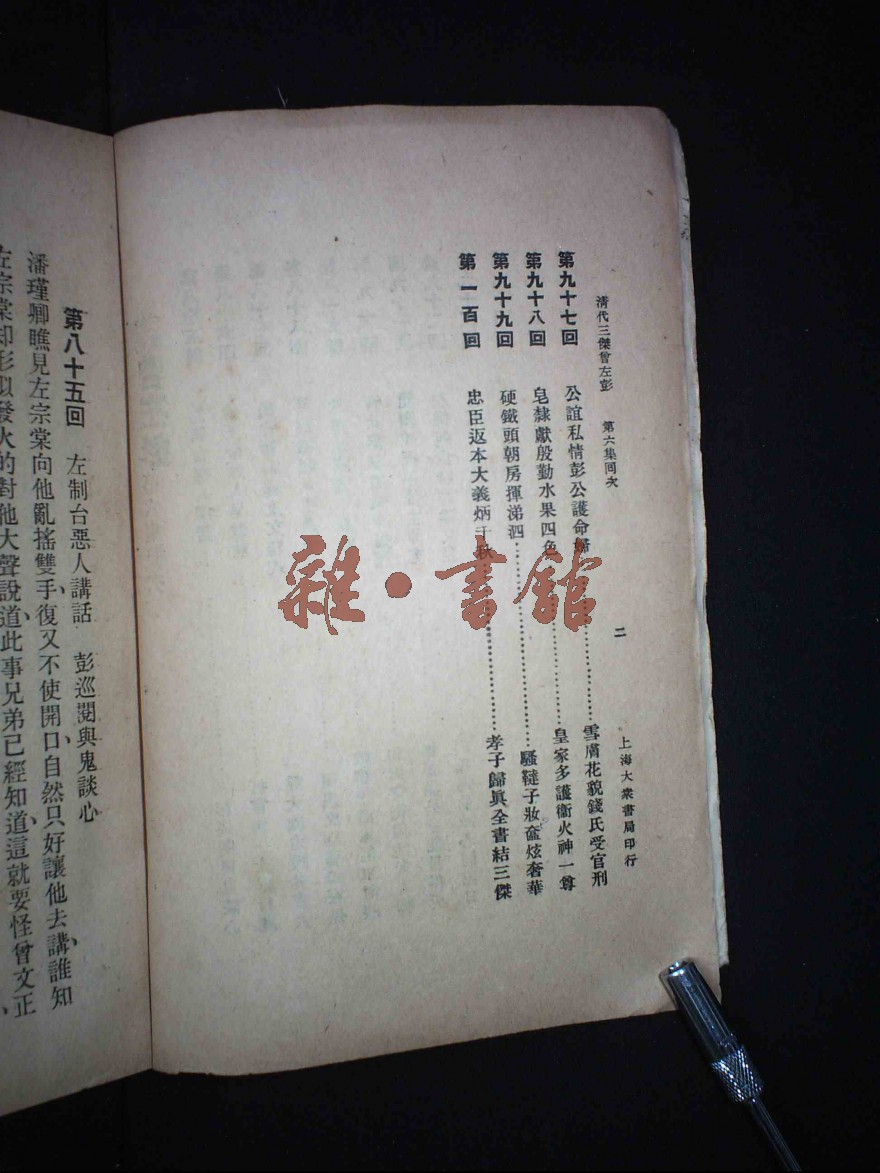 清代三傑曾左彭 第六集回次 二 上海大衆書局印行
第九十七回 公誼私情彭公護命婦……………雪膚花貌錢氏受官刑
第九十八回 皂隸獻殷勤水果四色……………皇家多護衛火神一尊
第九十九回 硬鐵頭朝房揮涕泗……………騷韃子妝奩炫奢華
第一百回 忠臣返本大義炳千秋……………孝子歸眞全書結三傑
雜·書館
第八十五回 左制台惡人講話 彭巡閱與鬼談心
潘瑾卿瞧見左宗棠向他亂搖雙手、復又不使開口、自然只好讓他去講、誰知
左宗棠却形似發火的對他大聲說道、此事兄弟已經知道、這就要怪曾文正、